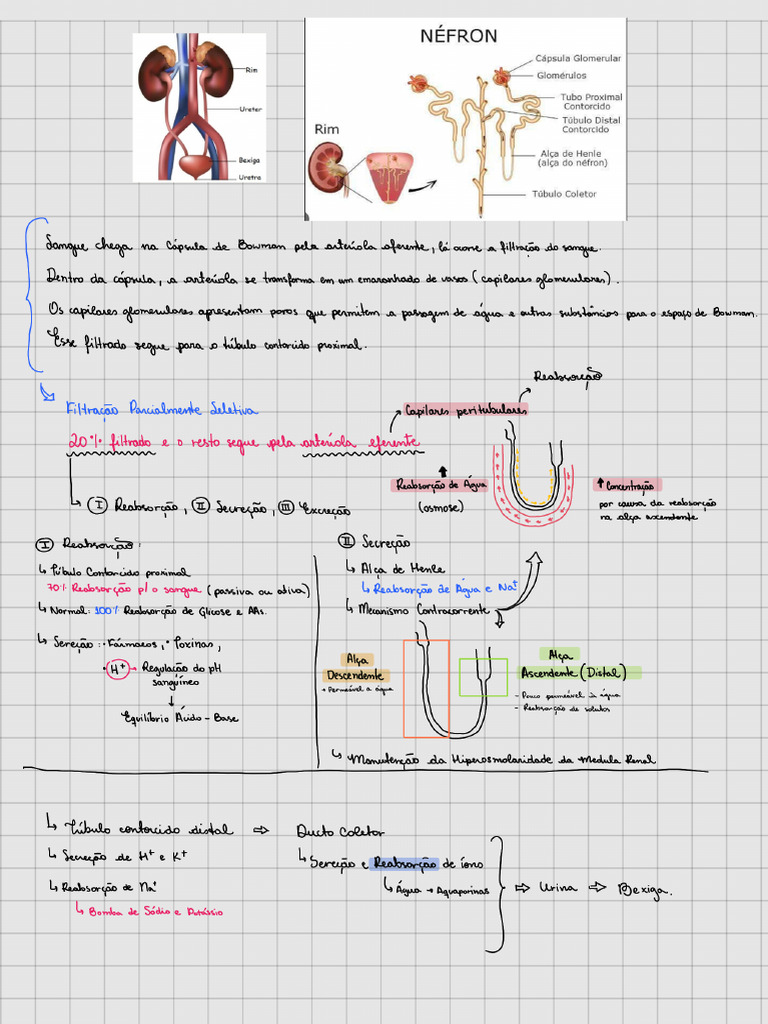 Rim
Ureter
Bexiga
Uretra
NÉFRON
Cápsula Glomerular
Glomérulos
Tubo Proximal
Contorcido
Túbulo Distal
Contorcido
Alça de Henle
(alça do néfron)
Túbulo Coletor
Rim
Sangue chega na Cápsula de Bowman pela arteríola aferente, lá ocorre a filtração do sangue.
Dentro da cápsula, a arteríola se transforma em um emaranhado de vasos (capilares glomerulares).
Os capilares glomerulares apresentam poros que permitem a passagem de água e outras substâncias para o espaço de Bowman.
Esse filtrado segue para o túbulo contorcido proximal.
Reabsorção
Filtração Parcialmente Seletiva
Capilares peritubulares
20% filtrado e o resto segue pela arteríola eferente
Reabsorção de Água
(osmose)
↑ Concentração
por causa da reabsorção
na alça ascendente
↳ Ⓘ Reabsorção, Ⓘⓘ Secreção, Ⓘⓘⓘ Excreção
Ⓘ Reabsorção:
↳ Túbulo Contorcido proximal
70% Reabsorção p/ o sangue (passiva ou ativa)
↳ Normal: 100% Reabsorção de Glicose e AAs.
↳ Sereção: • Fármacos, • Toxinas,
• H⁺ → Regulação do pH
sangüíneo
↓
Equilíbrio Ácido-Base
Ⓘⓘ Secreção
↳ Alça de Henle
↳ Reabsorção de Água e Na⁺
↳ Mecanismo Contracorrente
Alça
Descendente
• Permeável a água
Alça
Ascendente (Distal)
- Pouco permeável à água
- Reabsorção de solutos
↳ Manutenção da Hiperosmolaridade da Medula Renal
↳ Túbulo contorcido distal ⇨ Ducto Coletor
↳ Secreção de H⁺ e K⁺
↳ Reabsorção de Na⁺
↳ Bomba de Sódio e Potássio
↳ Sereção e Reabsorção de íons
↳ Água → Aquaporinas
⇨ Urina ⇨ Bexiga.